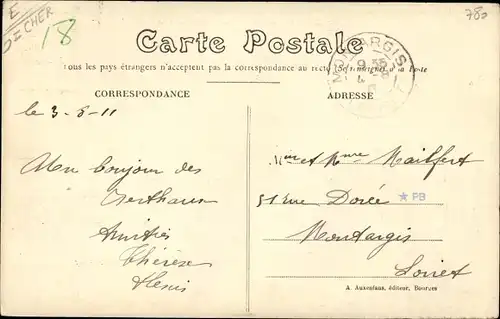 E
DICHER
18
780
Carte Postale
Tous les pays étrangers n'acceptent pas la correspondance au recto
MONTARGIS
CORRESPONDANCE
ADRESSE
le 3-8-11
Un bonjour des
Amitiés
Thérèse
et Mme Mailfert
51 rue Dorée
★ PB
Montargis
Loiret
A. Auxenfans, éditeur, Bourges